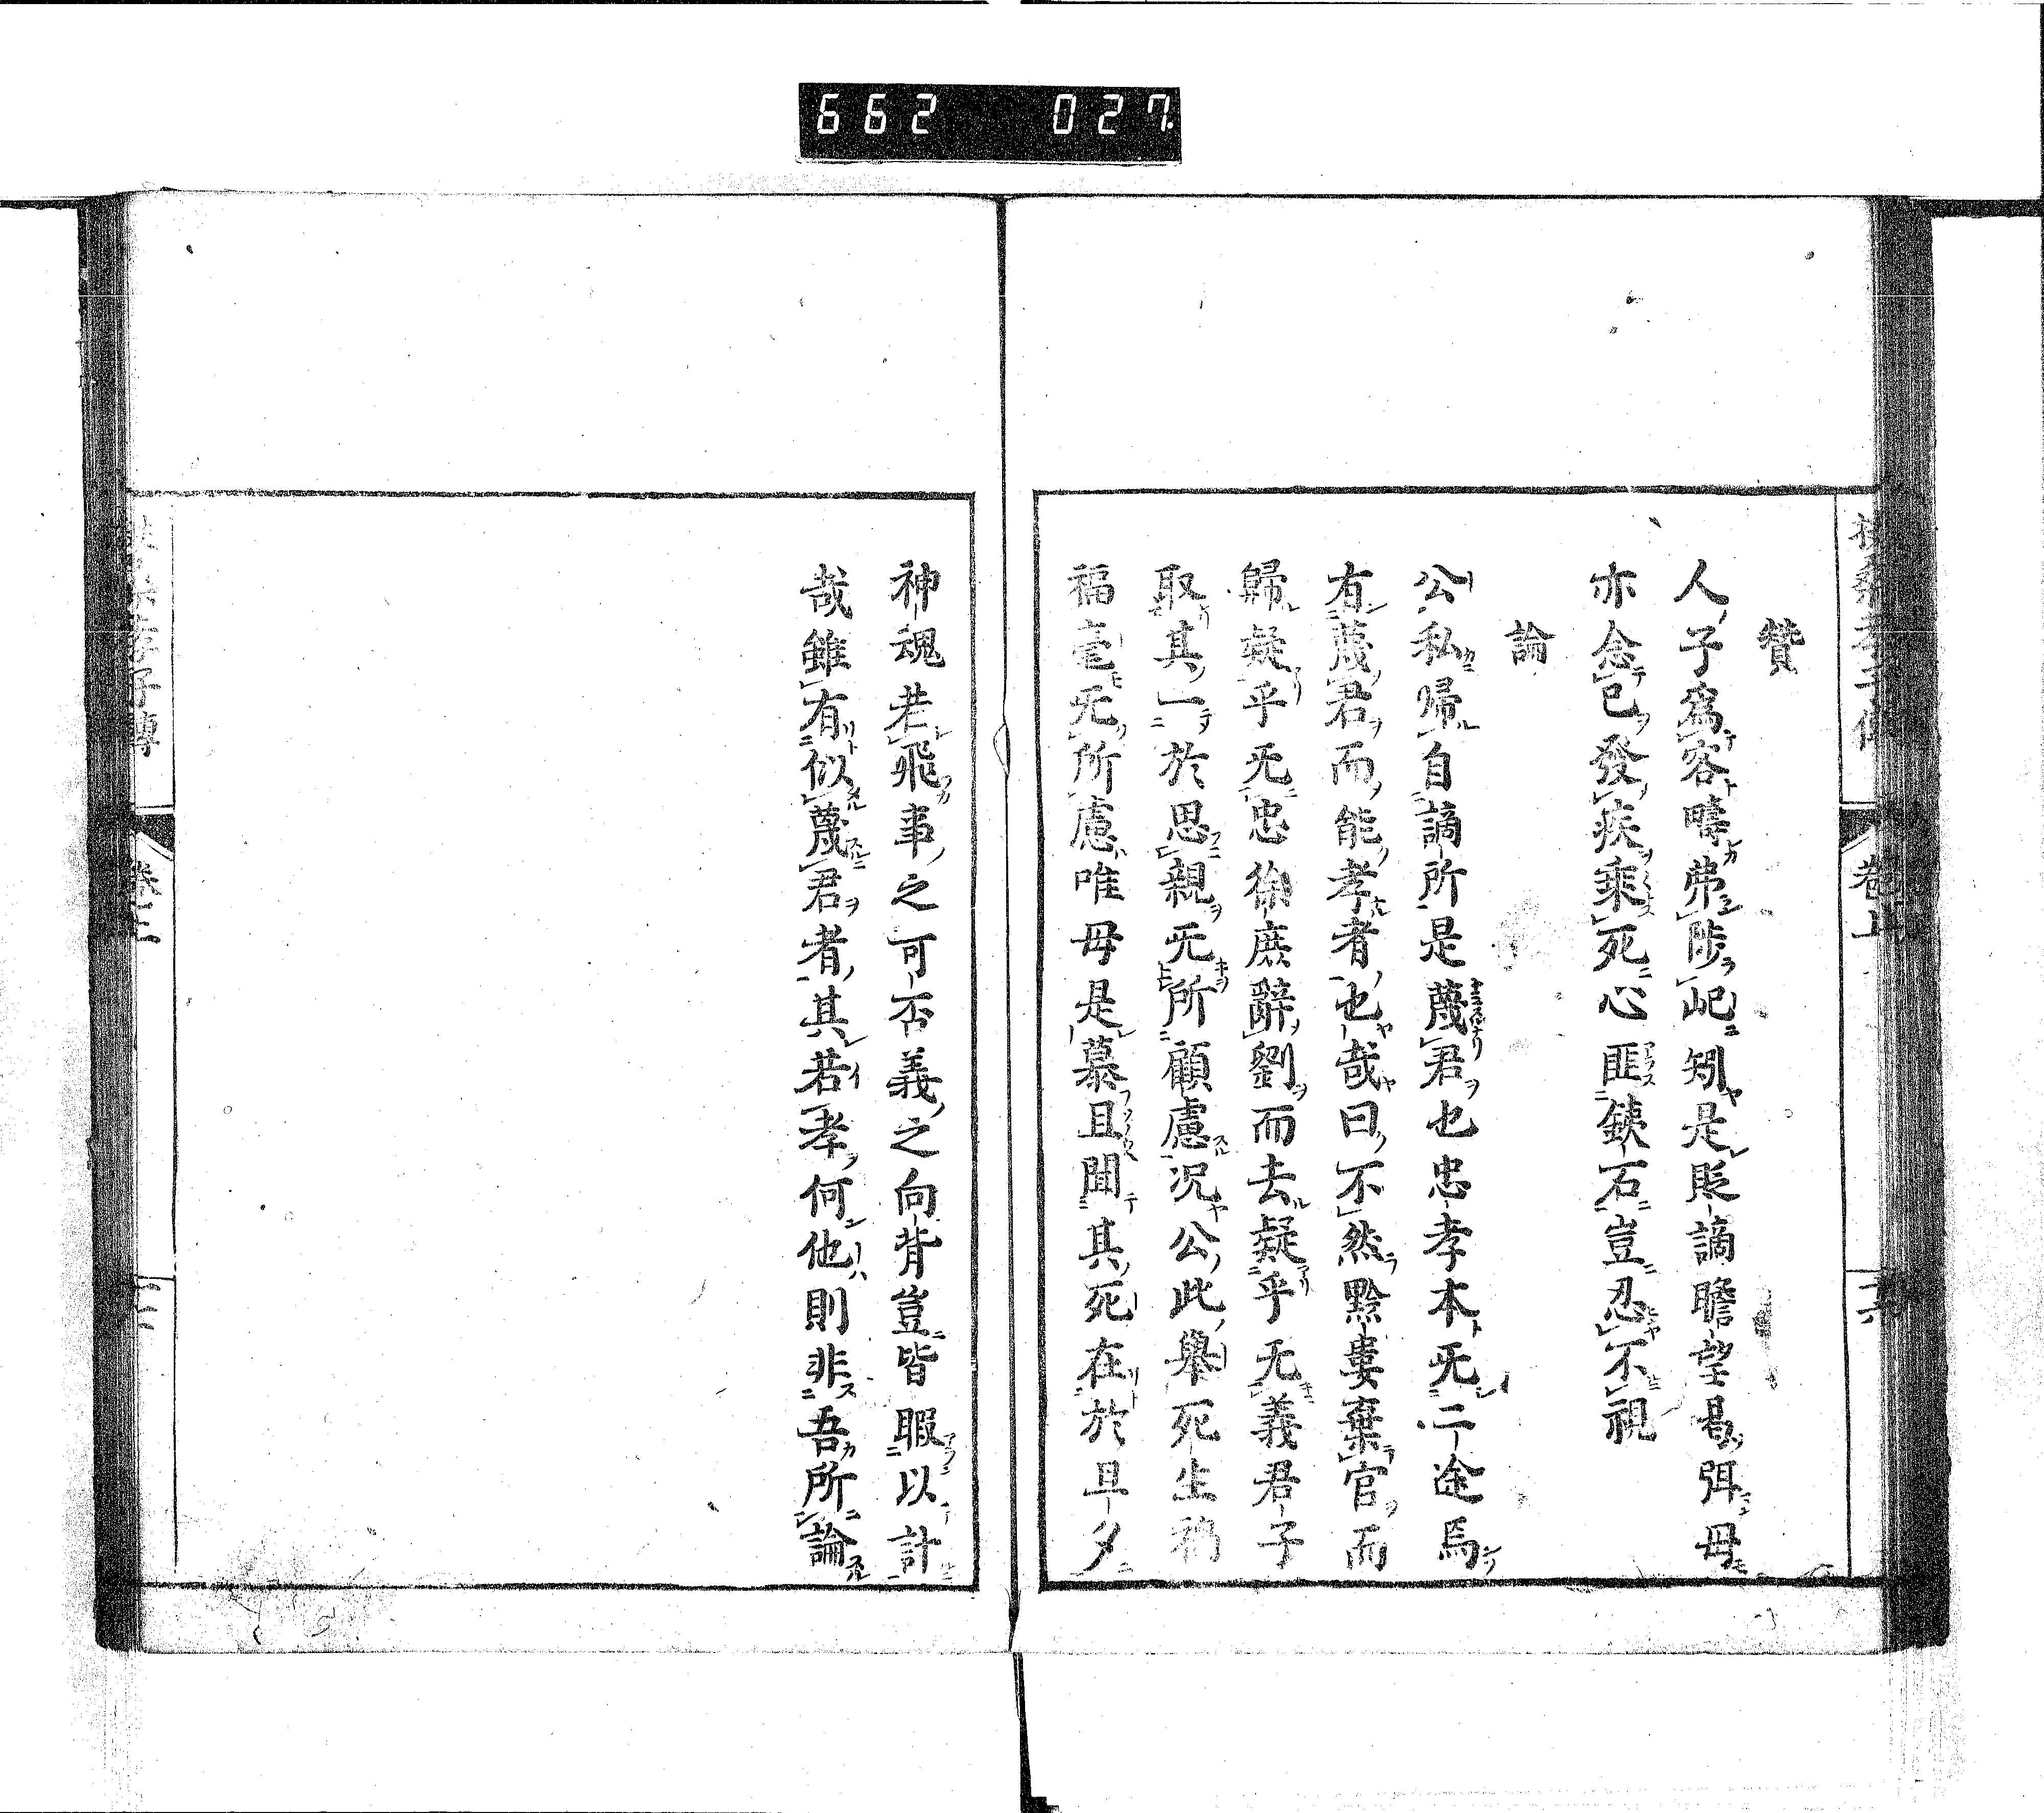 662 027.
扶桑孝子傳 卷上 十六
贊
人子爲客疇弗陟屺矧是貶謫瞻望曷弭母
亦念已發疾乘死心匪鐵石豈忍不視
論
公私歸自謫所是蔑君也忠孝本无二途焉
有蔑君而能孝者也哉曰不然黔婁棄官而
歸疑乎无忠徐庶辭劉而去疑乎无義君子
取其一於思親无所顧慮況公此舉死生禍
福毫无所慮唯母是慕且聞其死在於旦夕
神魂若飛事之可否義之向背豈皆暇以計
哉雖有似蔑君者其若孝何他則非吾所論
孝子傳 卷上